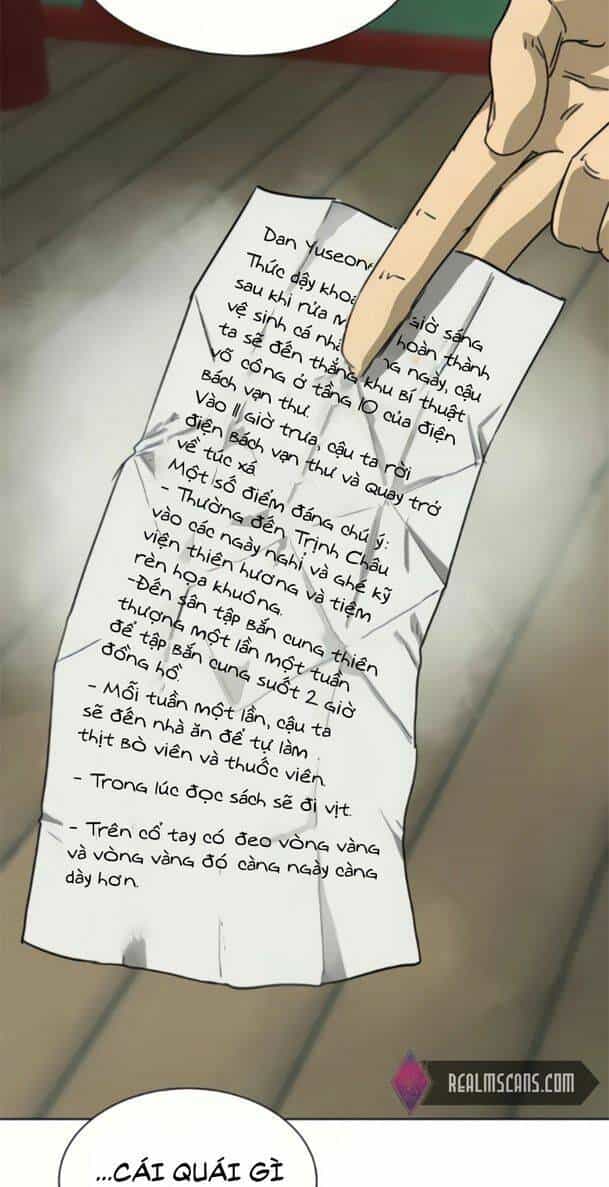 Dan Yuseong
Thức dậy khoảng giờ sáng
sau khi rửa hoàn thành
vệ sinh cá ngày, cậu
ta sẽ đến thẳng khu bí thuật
võ công ở tầng 10 của điện
Bách vạn thư.
Vào 11 giờ trưa, cậu ta rời
điện Bách vạn thư và quay trở
về túc xá
Một số điểm đáng chú ý:
- Thường đến Trịnh Châu
vào các ngày nghỉ và ghé kỹ
viện thiên hương và tiệm
rèn họa khuông.
-Đến sân tập bắn cung thiên
thượng một lần một tuần
để tập bắn cung suốt 2 giờ
đồng hồ.
- Mỗi tuần một lần, cậu ta
sẽ đến nhà ăn để tự làm
thịt bò viên và thuốc viên.
- Trong lúc đọc sách sẽ đi vịt.
- Trên cổ tay có đeo vòng vàng
và vòng vàng đó càng ngày càng
dày hơn.
REALMSCANS.COM
...CÁI QUÁI GÌ